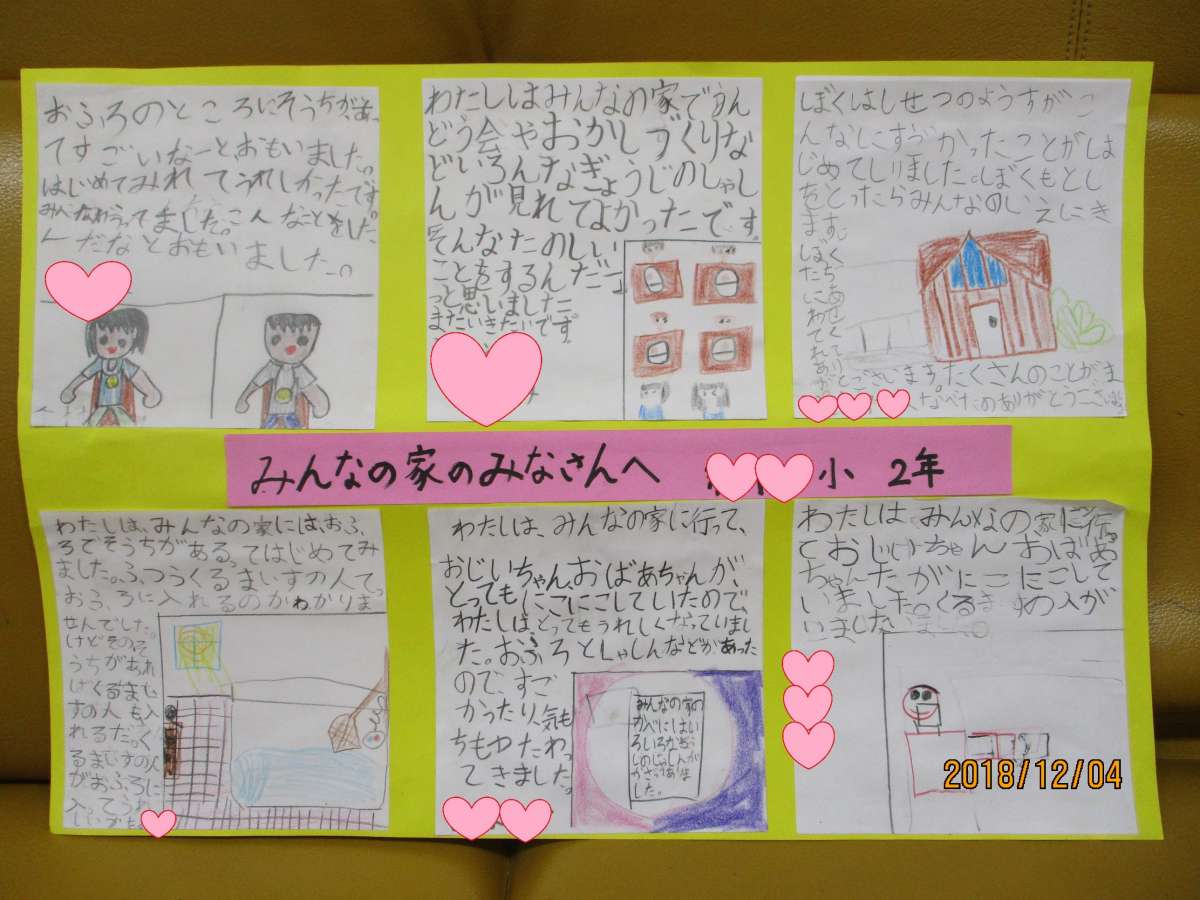 おふろのところにそうちがあっ
てすごいなーと、おもいました。
はじめてみれてうれしかったです。
みんなわらってました。こんなことをした
んだなとおもいました。
わたしはみんなの家でうん
どう会やおかしづくりな
どいろんなぎょうじのしゃし
んが見れてよかったです。
そんなたのしい
ことをするんだこ
っと思いました
またいきたいです。
ぼくはしせつのようすがこ
んなにすずかったことがはし
じめてしりました。ぼくもとし
をとったらみんなのいえにき
ます。
ぼく
たち
がとうございます。たくさんのことがま
なべたのありがとうござい
みんなの家のみなさんへ
小 2年
わたしは、みんなの家には、おふ
ろでそうちがある、てはじめてみ
ました。ふつうくるまいすの人て、
おふろに入れるのかわかりま
せんでした。
けどそのそ
うちがあれ
はくるまい
すの人も入
れるだっく
るまいすの人
がおふろに
入ってうれ
わたしは、みんなの家に行って、
おじいちゃん、おばあちゃんが、
とってもにこにこしていたので、
わたしは、とってもうれしくなっていまし
た。おふろとしゃしんなどがあった
ので、すご
かったり、人気も
ちもゆたわっ
てきました。
みんなの家の
かべにはい
ろいろなぎょう
しのじっしんが
した。
わたしは、みんなの家に行っ
ておじいちゃんおばあ
ちゃんたがにこにこして
いました。くるまいすの人が
いました
2018/12/04